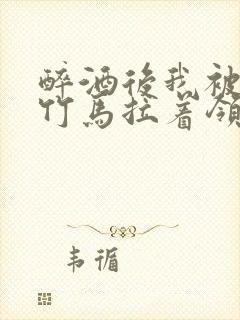 醉酒後我被
竹馬拉着領
韦循